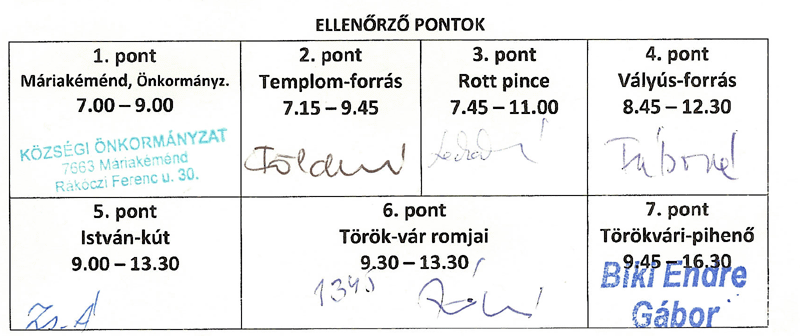 ELLENŐRZŐ PONTOK
1. pont
Máriakéménd, Önkormányz.
7.00 – 9.00
KÖZSÉGI ÖNKORMÁNYZAT
7663 Máriakéménd
Rákóczi Ferenc u. 30.
2. pont
Templom-forrás
7.15 – 9.45
3. pont
Rott pince
7.45 – 11.00
4. pont
Vályús-forrás
8.45 – 12.30
5. pont
István-kút
9.00 – 13.30
6. pont
Török-vár romjai
9.30 – 13.30
1345
7. pont
Törökvári-pihenő
9.45 – 16.30
Biki Endre
Gábor